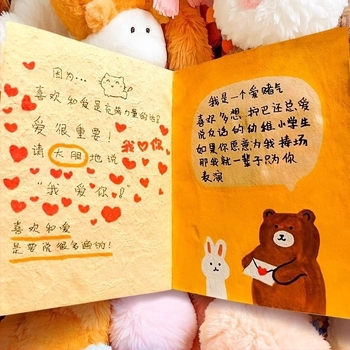 因为...
喜欢和爱是充满力量的话!
爱很重要!
请大胆地说
我你
“我爱你!”
喜欢和爱
是要说很多遍的!
我是一个爱赌气
喜欢多想 拧巴还总爱
说反话的幼稚小学生
如果你愿意为我捧场
那我就一辈子只为你
表演